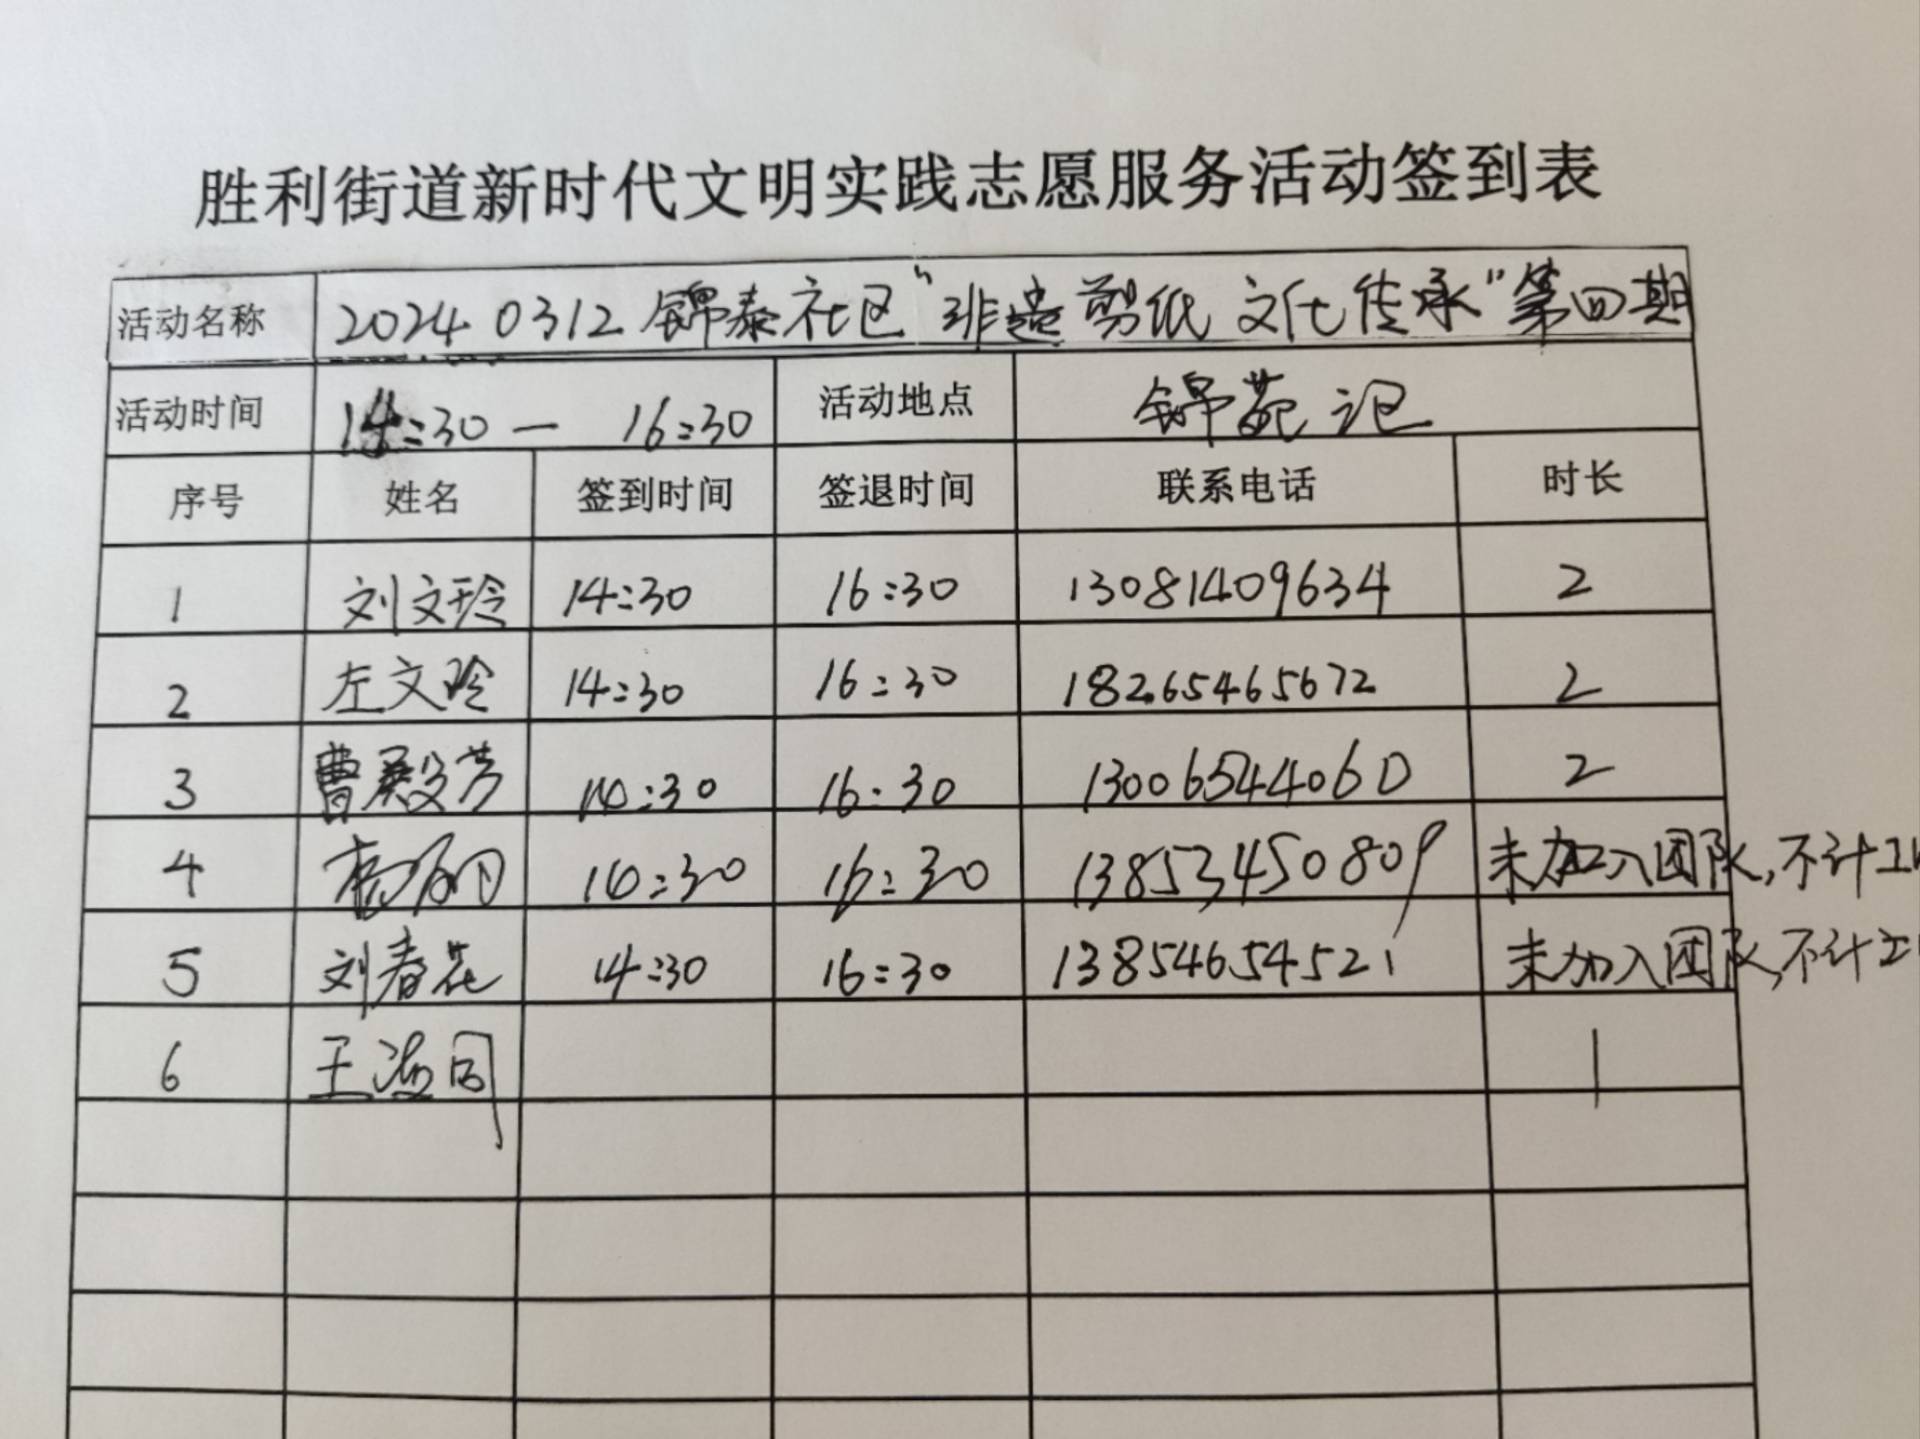 胜利街道新时代文明实践志愿服务活动签到表
活动名称 20240312锦泰社区“非遗剪纸 文化传承”第四期
活动时间 14:30 — 16:30 活动地点 锦苑记
序号 姓名 签到时间 签退时间 联系电话 时长
1 刘文玲 14:30 16:30 13081409634 2
2 左文玲 14:30 16:30 18265465672 2
3 曹殿芳 14:30 16:30 13006544060 2
4 14:30 16:30 13853450809 未加入团队,不计工
5 刘春花 14:30 16:30 13854654521 未加入团队,不计工
6 王 1